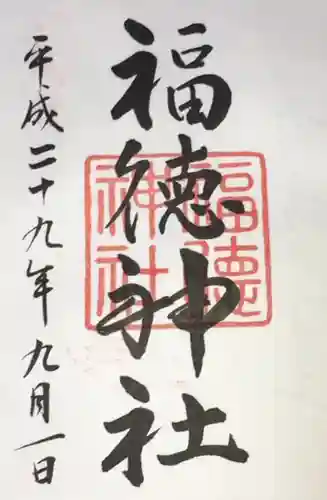 福徳神社
福德神社
平成二十九年九月一日